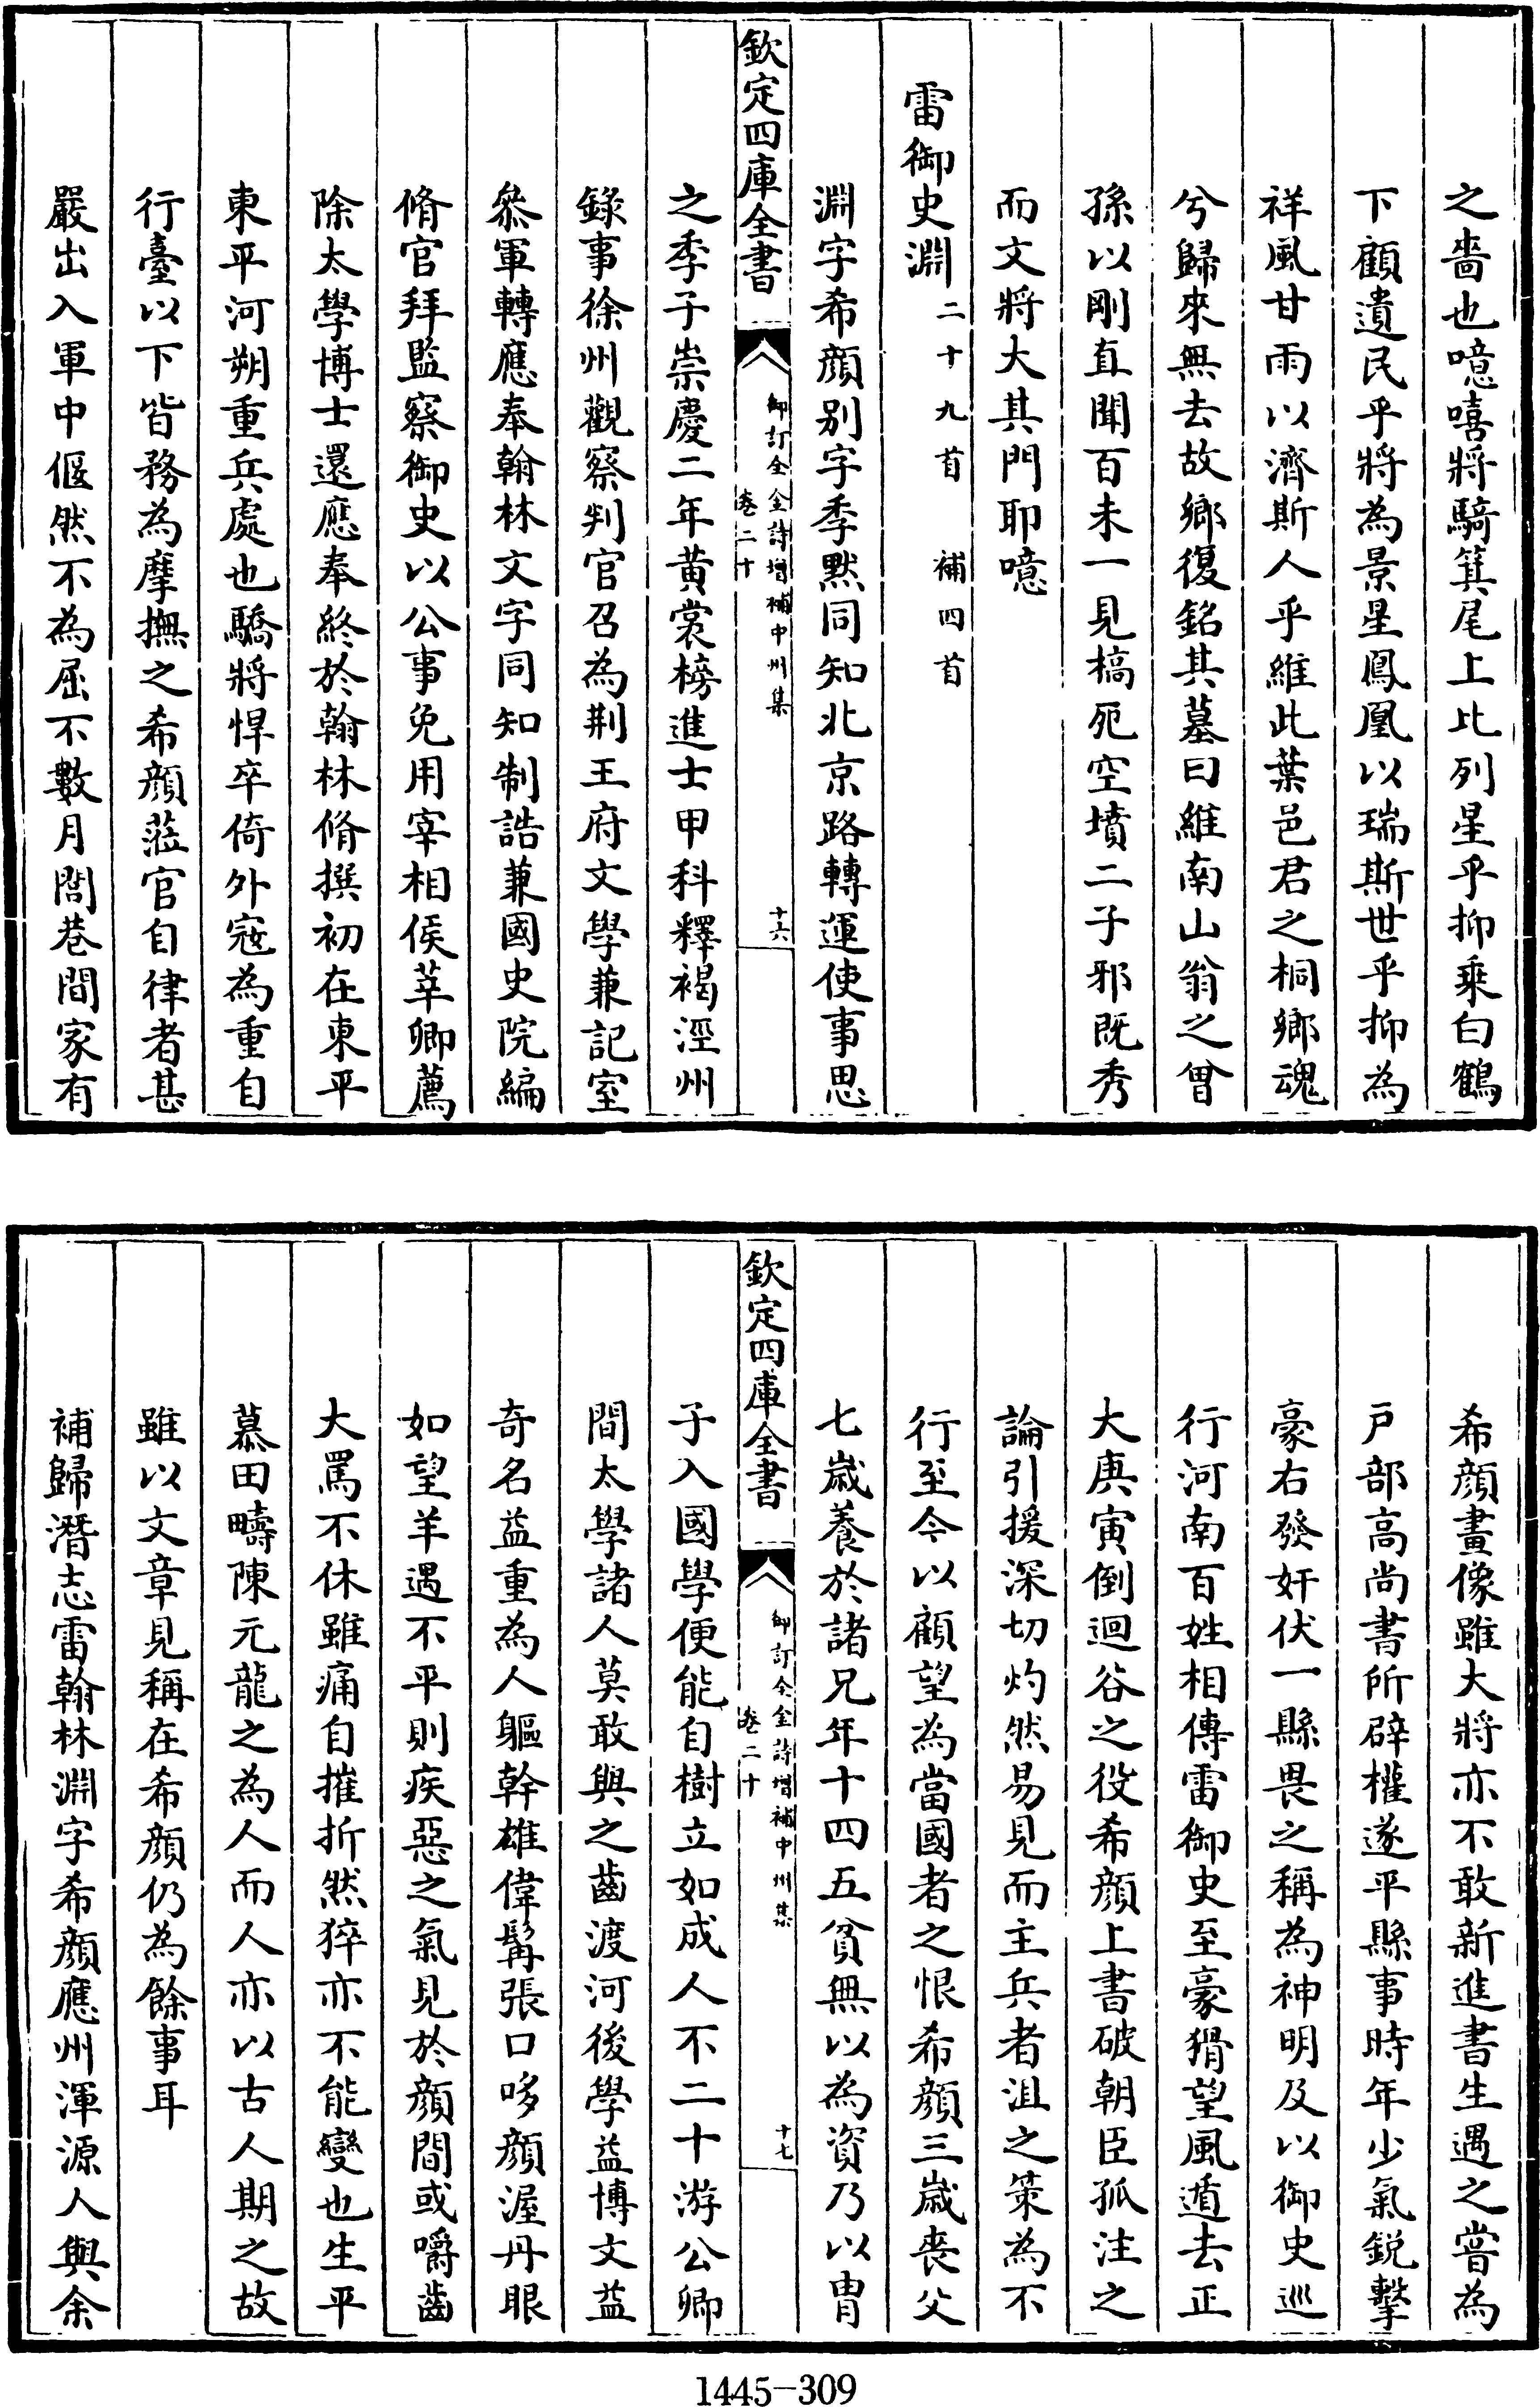 之嗇也噫嘻將騎箕尾上比列星乎抑乘白鶴
下顧遺民乎將為景星鳳凰以瑞斯世乎抑為
祥風甘雨以濟斯人乎維此葉邑君之桐鄉魂
兮歸來無去故鄉復銘其墓曰維南山翁之曾
孫以剛直聞百未一見槁死空墳二子邪既秀
而文將大其門耶噫
雷御史淵 二十九首 補四首
淵字希顔别字季黙同知北京路轉運使事思
欽定四庫全書 御訂全金詩增補中州集 卷二十 十六
之季子崇慶二年黄裳榜進士甲科釋褐涇州
錄事徐州觀察判官召為荆王府文學兼記室
叅軍轉應奉翰林文字同知制誥兼國史院編
脩官拜監察御史以公事免用宰相侯莘卿薦
除太學博士還應奉終於翰林脩撰初在東平
東平河朔重兵處也驕將悍卒倚外寇為重自
行臺以下皆務為摩撫之希顔蒞官自律者甚
嚴出入軍中偃然不為屈不數月閭巷間家有
希顔畫像雖大將亦不敢新進書生遇之嘗為
戸部高尚書所辟權遂平縣事時年少氣鋭擊
豪右發奸伏一縣畏之稱為神明及以御史巡
行河南百姓相傳雷御史至豪猾望風遁去正
大庚寅倒迴谷之役希顔上書破朝臣孤注之
論引援深切灼然易見而主兵者沮之策為不
行至今以顧望為當國者之恨希顔三歲喪父
七歲養於諸兄年十四五貧無以為資乃以胄
欽定四庫全書 御訂全金詩增補中州集 卷二十 十七
子入國學便能自樹立如成人不二十游公卿
間太學諸人莫敢與之齒渡河後學益博文益
奇名益重為人軀幹雄偉髯張口哆顔渥丹眼
如望羊遇不平則疾惡之氣見於顔間或嚼齒
大罵不休雖痛自摧折然猝亦不能變也生平
慕田疇陳元龍之為人而人亦以古人期之故
雖以文章見稱在希顔仍為餘事耳
補歸潛志雷翰林淵字希顔應州渾源人與余
1445-309